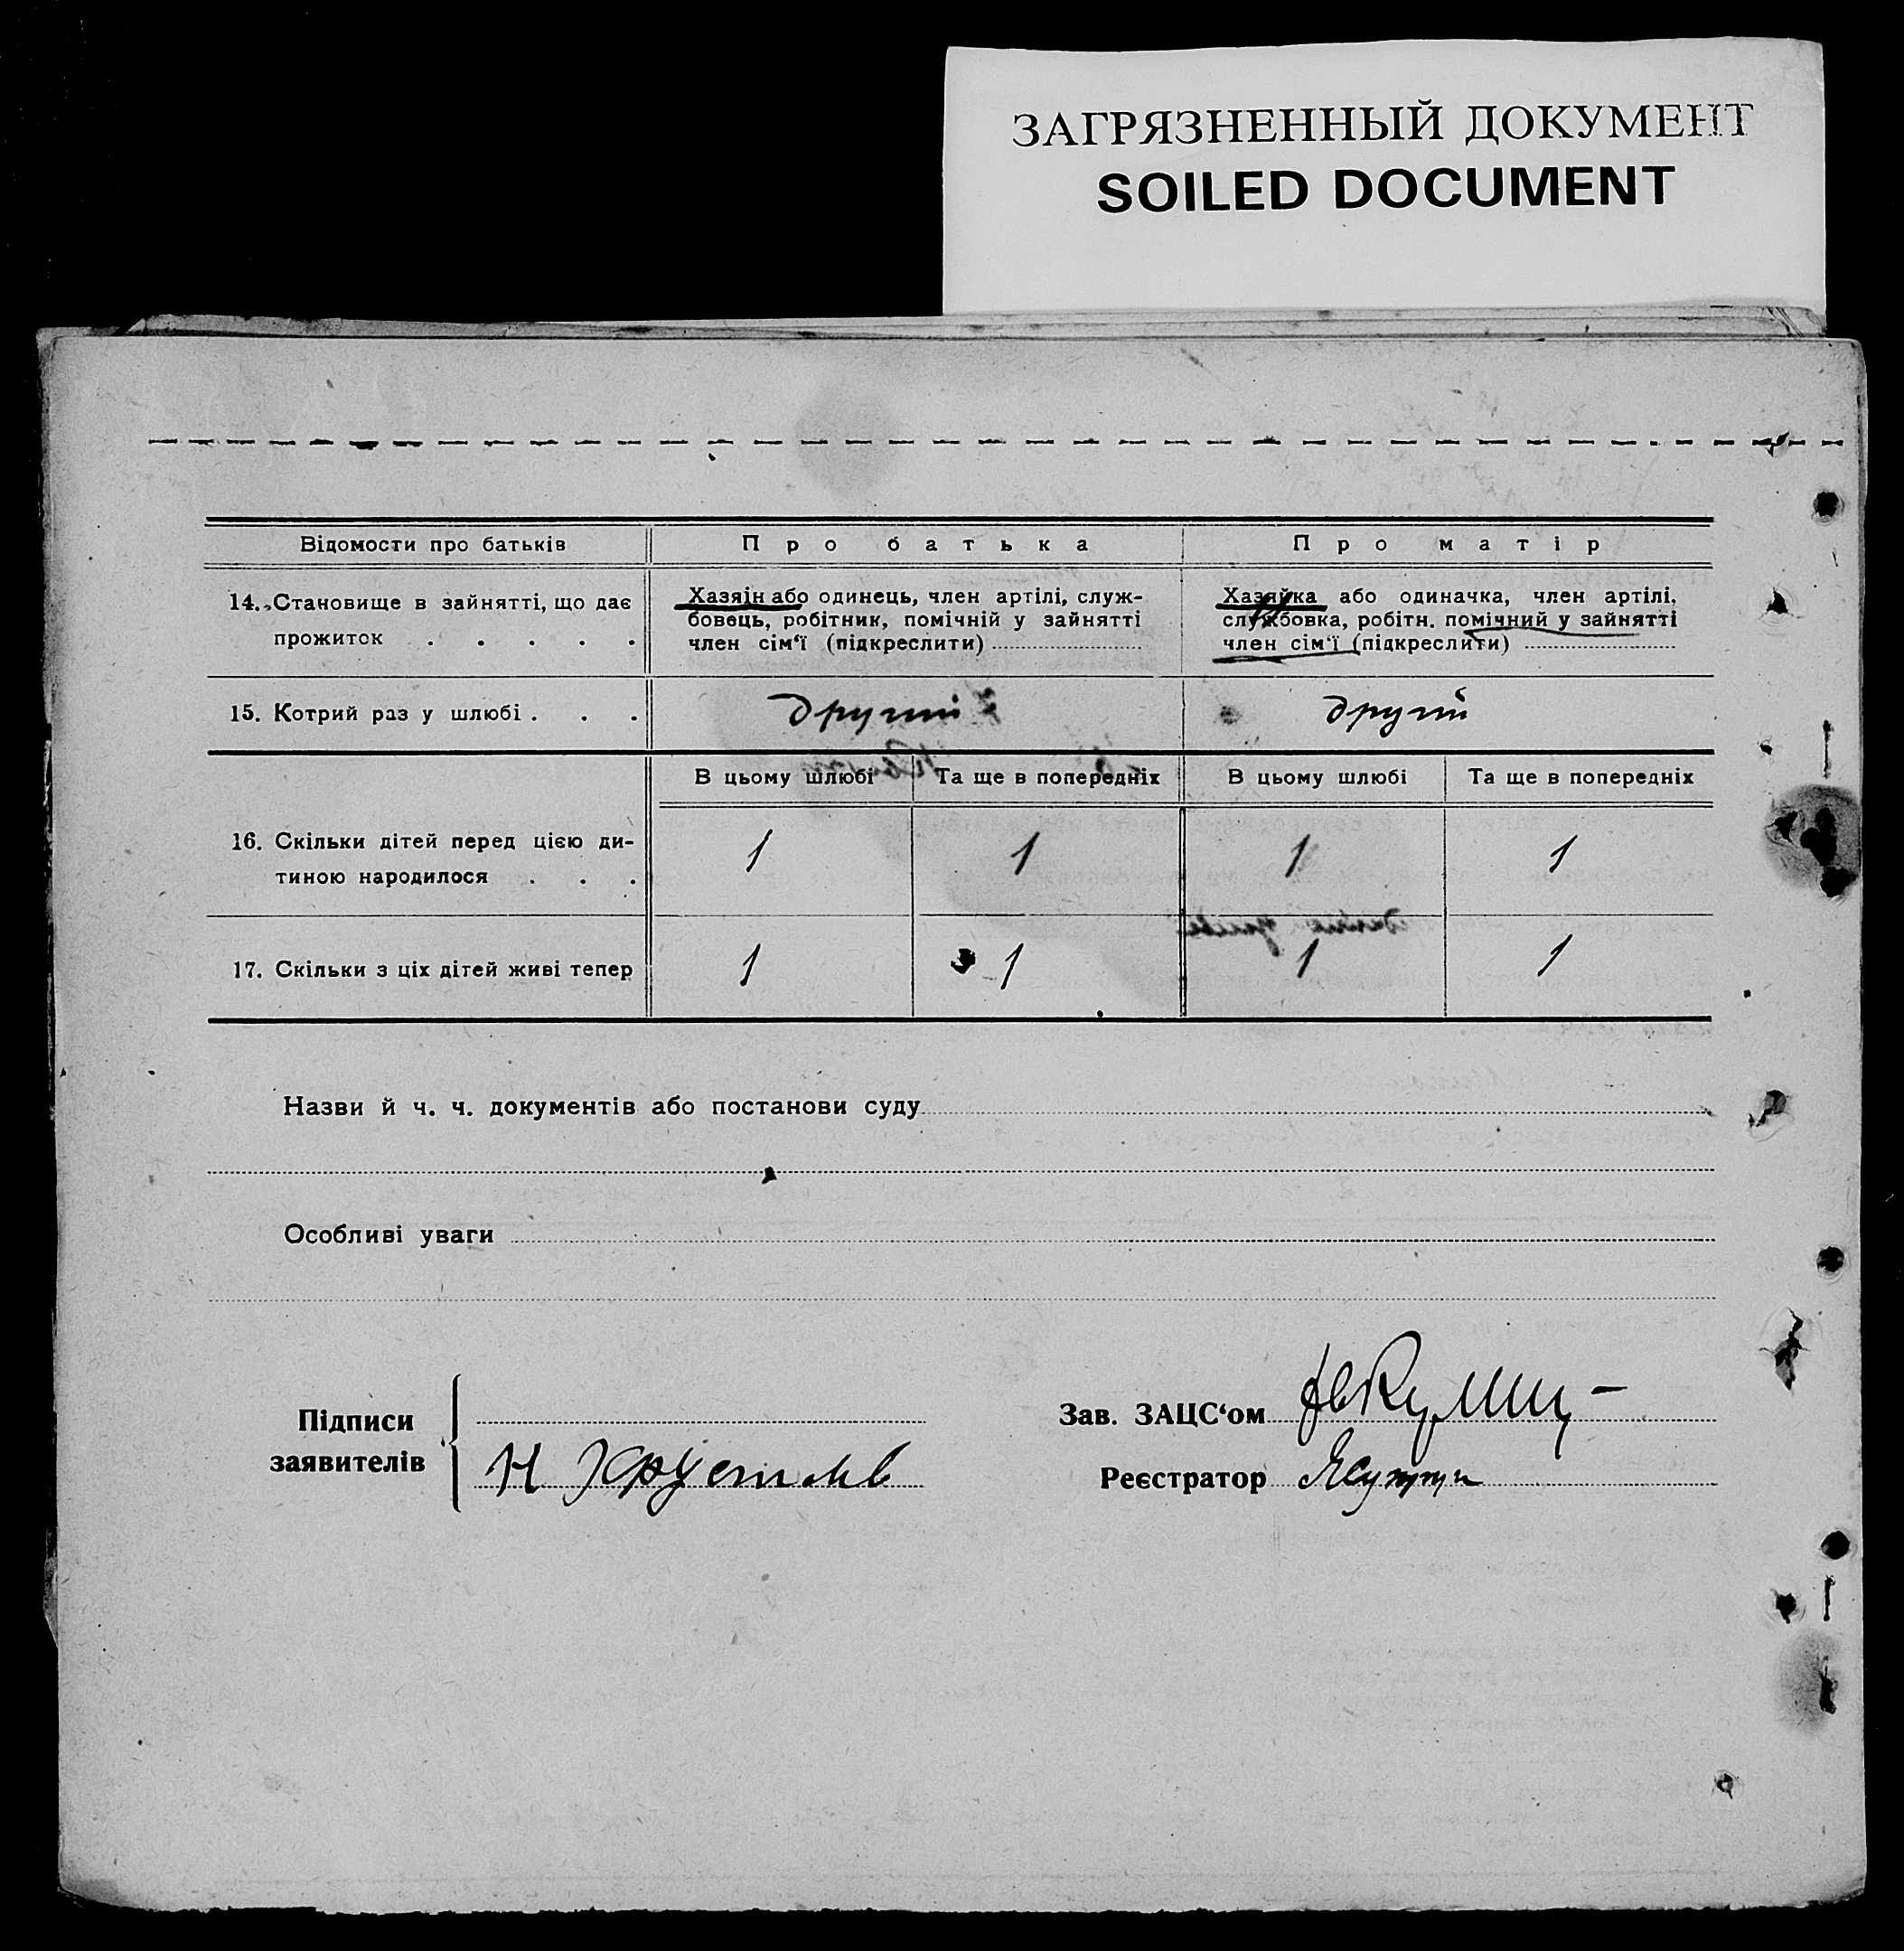 ЗАГРЯЗНЕННЫЙ ДОКУМЕНТ
SOILED DOCUMENT
Відомости про батьків Про батька Про матір
14. Становище в зайнятті, що дає
прожиток . . . . .
Хазяін або одинець, член артілі, служ-
бовець, робітник, помічній у зайнятті
член сім‘ї (підкреслити)
Хазяйка або одиначка, член артілі,
службовка, робітн. помічний у зайнятті
член сім‘ї (підкреслити)
15. Котрий раз у шлюбі . . . другий другий
В цьому шлюбі Та ще в попередніх В цьому шлюбі Та ще в попередніх
16. Скільки дітей перед цією ди-
тиною народилося . . . 1 1 1 1
17. Скільки з ціх дітей живі тепер 1 1 1 1
Назви й ч. ч. документів або постанови суду
Особливі уваги
Підписи
заявителів
Н
Зав. ЗАЦС‘ом
Реєстратор